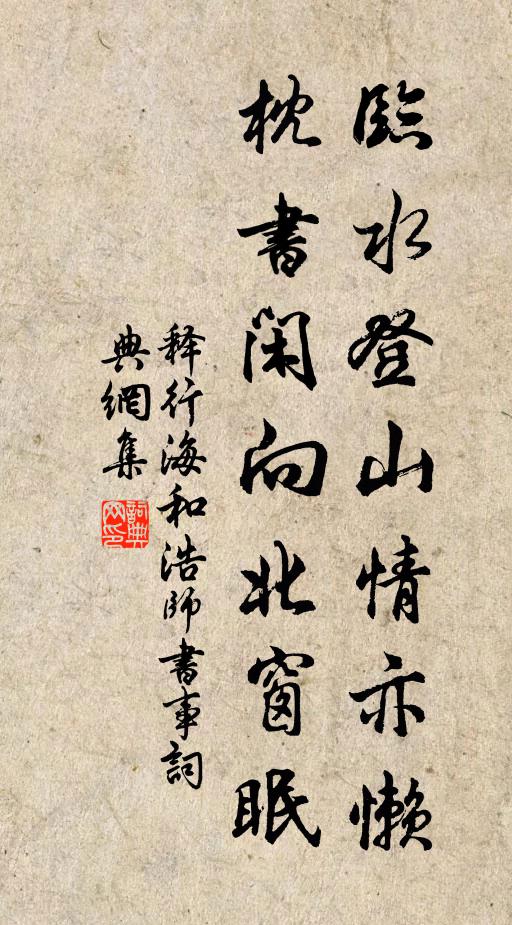 臨水登山情亦懶
枕書閑向北窗眠
释行海和浩師書事詞
典網集
詞典網印